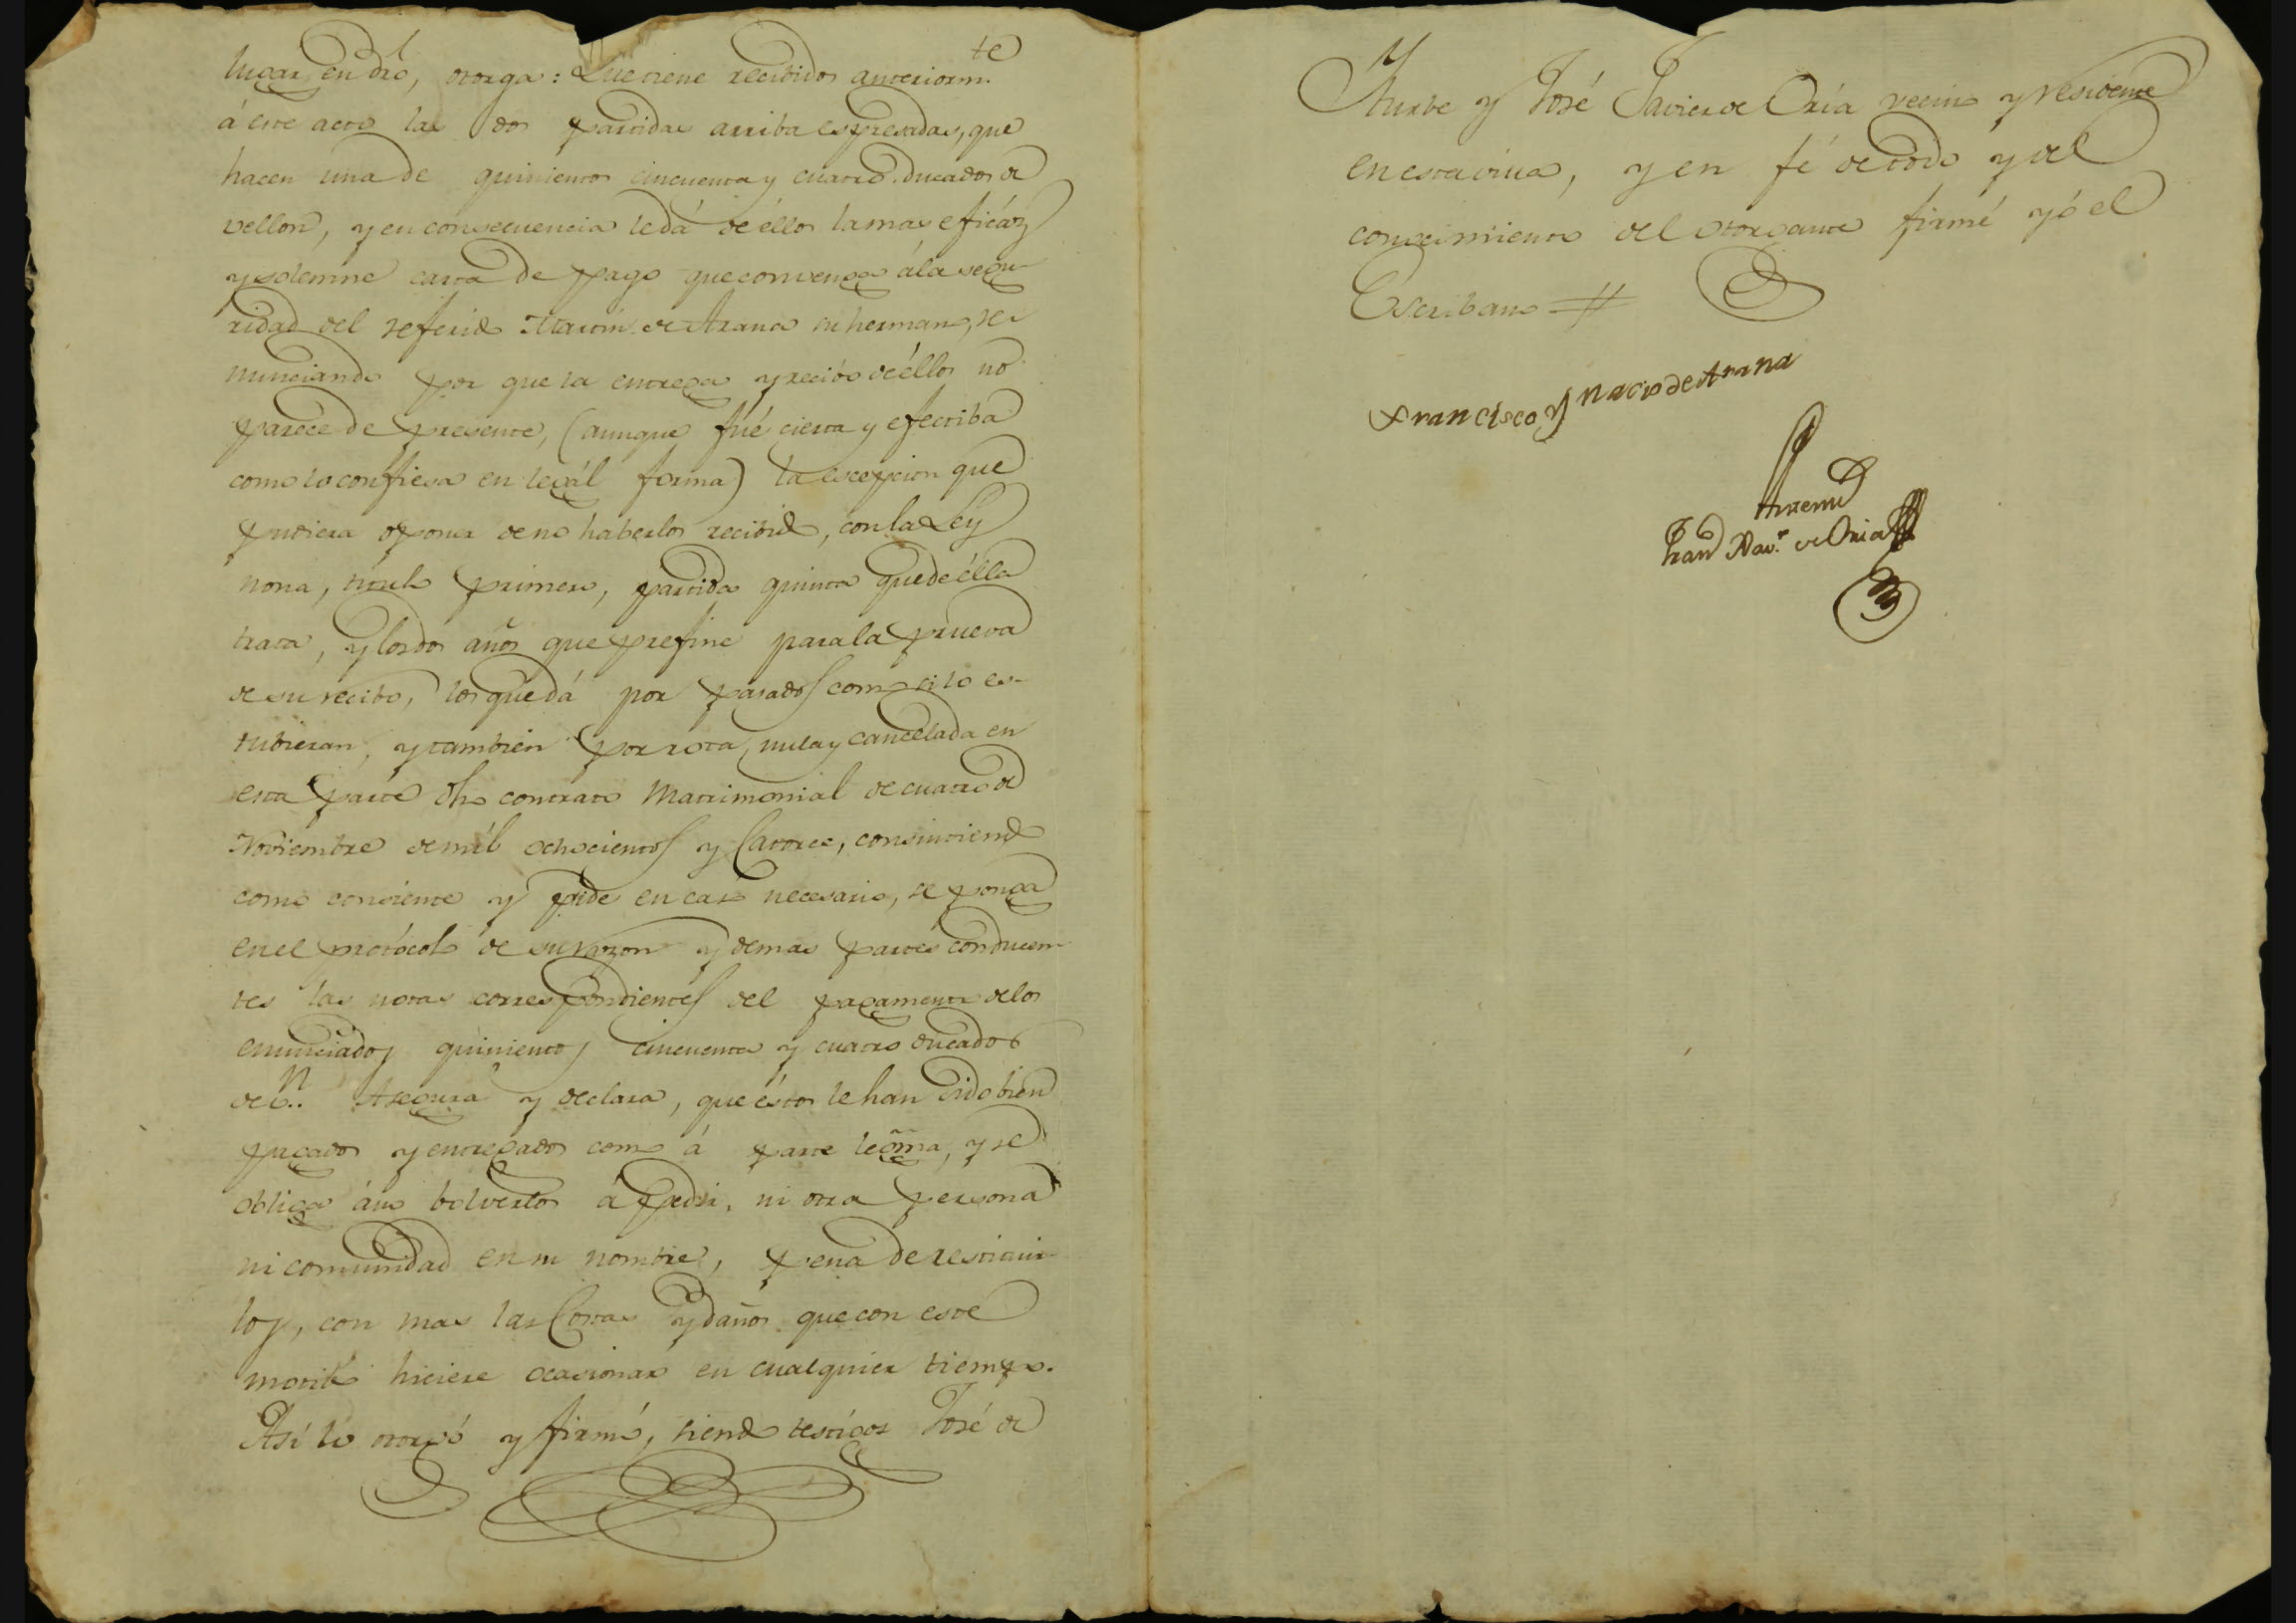 lugar en dro, otorga: Que tiene recibidos anteriorm.te
á este acto las dos partidas arriba espresadas, que
hacen una de quinientos cincuenta y cuatro ducados de
vellon, y en consecuencia le dá de éllos la mas eficáz
y solemne carta de pago que convenga á la segu-
ridad del referido Martin de Arana su hermano, re-
nunciando por que la entrega y recibo de éllos no
parece de presente, (aunque fué cierta y efectiba
como lo confiesa en legál forma) la escepcion que
pudiera oponer de no haberlos recibido, con la Ley
nona, titulo primero, partida quinta que de élla
trata, y los dos años que prefine para la prueva
de su recibo, los que dá por pasados como si lo es-
tubieran, y tambien por rota, nula y cancelada en
esta parte dho contrato Matrimonial de cuatro de
Noviembre de mil ochocientos y Catorce, consintiendo
como consiente y pide en caso necesario, se ponga
en el protócolo de su razon y demas partes conducen-
tes las notas correspondientes del pagamento de los
enunciados quinientos cincuenta y cuatro ducados
de v.n Asegura y declara, que éstos le han sido bien
pagados y entregados como á parte legma, y se
obliga á no bolverlos á pedir, ni otra persona
ni comunidad en su nombre, pena de restituir-
los, con mas las Costas y daños que con este
motibo hiciere ocasionar en cualquier tiempo.
Así lo otorgó y firmó, siendo testigos José de
Yturbe y José Javier de Oria vecino y residente
en esta villa, y en fé de todo y del
conocimiento del otorgante firmé yó el
Escribano
Francisco Ynacio de Arana
Antemi
Juan Xav.r de Oria